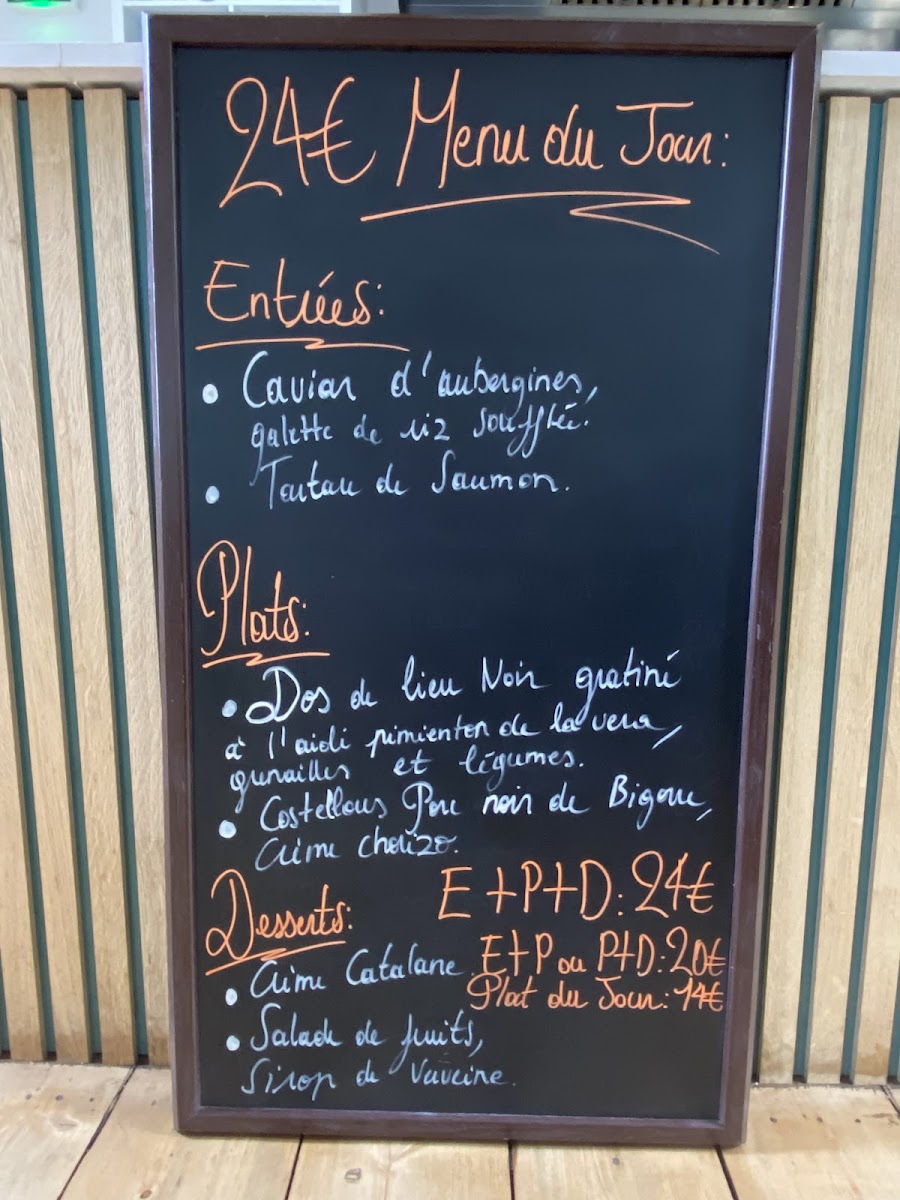 24€ Menu du Jour:
Entrées:
• Caviar d'aubergines,
galette de riz soufflée.
• Tartare de Saumon.
Plats:
• Dos de lieu Noir gratiné
à l'aïoli pimienton de la vera,
grenailles et légumes.
• Costellous Porc noir de Bigorre,
Crème chorizo.
E+P+D: 24€
Desserts:
E+P ou P+D: 20€
• Crème Catalane.
Plat du Jour: 14€
• Salade de fruits,
Sirop de Verveine.